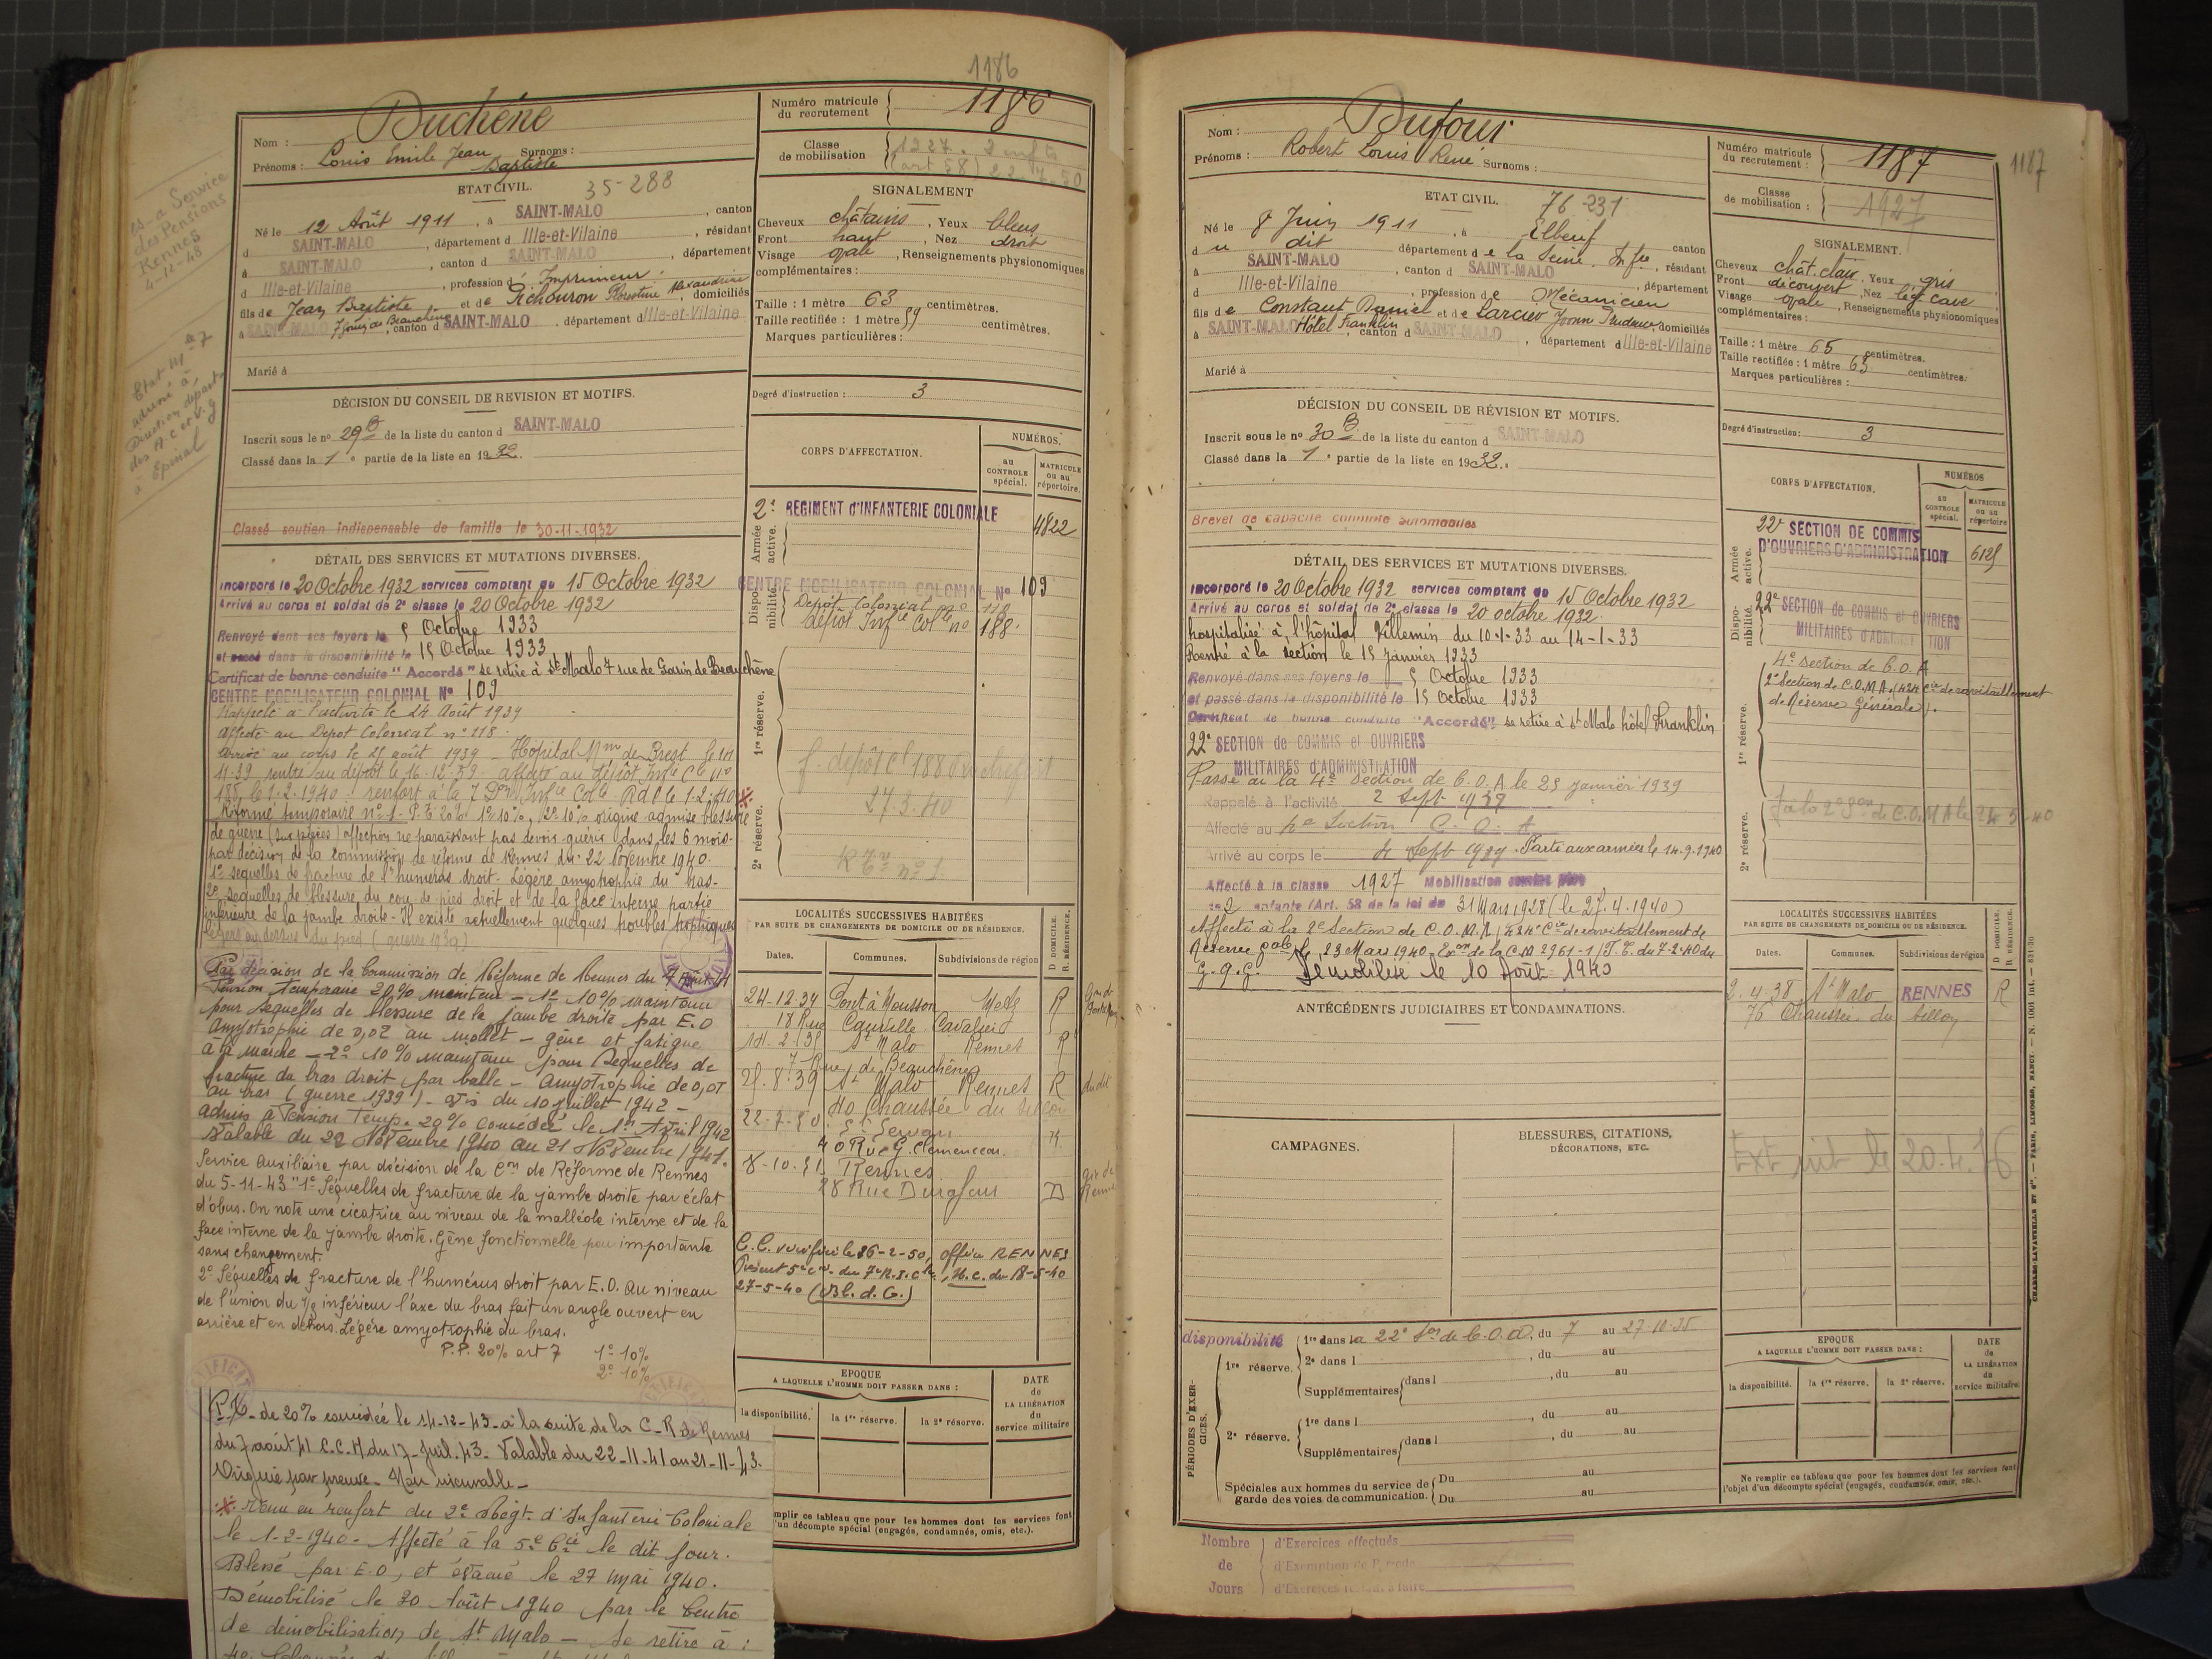 1186
Nom : Duchêne
Prénoms : Louis Emile Jean Baptiste Surnoms :
ETAT CIVIL. 35-288
Né le 12 Août 1911, à SAINT-MALO, canton
d SAINT-MALO, département d Ille-et-Vilaine, résidant
à SAINT-MALO, canton d SAINT-MALO, département
d Ille-et-Vilaine, profession d' Imprimeur
fils de Jean Baptiste et de Florentine Alexandrine, domiciliés
à SAINT-MALO, canton d SAINT-MALO, département d Ille-et-Vilaine
Marié à
Numéro matricule du recrutement 1186
Classe de mobilisation 1927. 2 enfts
(art 58) 22-7-50
SIGNALEMENT
Cheveux châtains, Yeux bleus
Front haut, Nez droit
Visage ovale, Renseignements physionomiques
complémentaires :
Taille : 1 mètre 63 centimètres.
Taille rectifiée : 1 mètre 59 centimètres.
Marques particulières :
Degré d'instruction : 3
es - a Service
des Pensions
Rennes
4-12-48
Etat Mle 7
adressé à
Direction départ
des A.C et V.G
à Epinal
DÉCISION DU CONSEIL DE REVISION ET MOTIFS.
Inscrit sous le no 29 B de la liste du canton d SAINT-MALO
Classé dans la 1e partie de la liste en 1932.
Classé soutien indispensable de famille le 30-11-1932
DÉTAIL DES SERVICES ET MUTATIONS DIVERSES.
Incorporé le 20 Octobre 1932 services comptant du 15 Octobre 1932
Arrivé au corps et soldat de 2e classe le 20 Octobre 1932
Renvoyé dans ses foyers le 5 Octobre 1933
et passé dans la disponibilité le 15 Octobre 1933
Certificat de bonne conduite "Accordé" se retire à St Malo 7 rue de Garin de Beauchêne
CENTRE MOBILISATEUR COLONIAL No 109
Rappelé à l'activité le 24 Août 1939
affecté au Dépôt Colonial no 118.
arrivé au corps le 25 août 1939 - Hôpital Mme de Brest le 14
11-39 rentré au dépôt le 16-12-39. affecté au dépôt Infie Cle no
185 le 1-2-1940 - renfort à la 7 Don Infie Colle R d l le 1-2-40
Réformé temporaire no 1 - P.T 20% 1o 10%, 2o 10% origine admise blessure
de guerre (sur pièces) affection ne paraissant pas devoir guérir dans les 6 mois-
par décision de la commission de réforme de Rennes du 22 Novembre 1940.
1o séquelles de fracture de l'humérus droit. Légère amyotrophie du bras-
2o séquelles de blessure du cou de pied droit et de la face interne partie
inférieure de la jambe droite - Il existe actuellement quelques troubles trophiques
légers au dessus du pied (guerre 1939)
Par décision de la Commission de Réforme de Rennes du 7 Août 41
Pension temporaire 20% maintenu - 1o 10% maintenu
pour séquelles de blessure de la jambe droite par E.O
amyotrophie de 0,02 au mollet - gêne et fatigue
à la marche - 2o 10% maintenu pour séquelles de
fracture du bras droit par balle - amyotrophie de 0,01
au bras (guerre 1939) - avis du 10 juillet 1942 -
admis à Pension Temp. 20% concédée le 1er Avril 1942
Valable du 22 Novembre 1940 au 21 Novembre 1941.
Service Auxiliaire par décision de la Con de Réforme de Rennes
du 5-11-43 "1o Séquelles de fracture de la jambe droite par éclat
d'obus. On note une cicatrice au niveau de la malléole interne et de la
face interne de la jambe droite. Gêne fonctionnelle peu importante
sans changement.
2o Séquelles de fracture de l'humérus droit par E.O. au niveau
de l'union du 1/3 inférieur l'axe du bras fait un angle ouvert en
arrière et en dehors. Légère amyotrophie du bras.
P.P. 20% art 7 1o 10%
2o 10%
P.T. de 20% concédée le 14-12-43 - à la suite de la C.R de Rennes
du 7 août 41 C.C.H du 17 Juil. 43 - Valable du 22-11-41 au 21-11-43.
Origine par preuve - Non
Venu en renfort du 2e Régt d'Infanterie Coloniale
le 1-2-1940. Affecté à la 5e Cie le dit jour.
Blessé par E.O, et évacué le 27 mai 1940.
Démobilisé le 30 Août 1940 par le Centre
de démobilisation de St Malo - Se retire à :
CORPS D'AFFECTATION.
NUMÉROS.
au CONTROLE spécial.
MATRICULE ou au répertoire.
Armée active.
2e RÉGIMENT d'INFANTERIE COLONIALE 4822
Disponibilité
CENTRE MOBILISATEUR COLONIAL No 109
Dépôt Colonial no 118
dépôt Infie Colle no 188.
1re réserve.
f. dépôt Cl 188 Rochefort
27.3.40
2e réserve.
R Tre no 1
LOCALITÉS SUCCESSIVES HABITÉES
PAR SUITE DE CHANGEMENTS DE DOMICILE OU DE RÉSIDENCE.
D DOMICILE. R RÉSIDENCE.
Dates. Communes. Subdivisions de région
24-12-34 Pont à Mousson Metz R
18 Rue Cavalier
14-2-38 St Malo Rennes R
7 Rue de Beauchêne
25.8.39 St Malo Rennes R du dit
40 Chaussée du Sillon
22-7-50 St Servan R
40 Rue G. Clemenceau
8-10-51 Rennes
28 Rue D
C.C. vérifié le 26-2-50, office RENNES
Présent 5e Cie du 7e R.I.Cle, U.C. du 18-5-40
27-5-40 (Bl. d. G.)
EPOQUE
A LAQUELLE L'HOMME DOIT PASSER DANS :
la disponibilité. la 1re réserve. la 2e réserve.
DATE de LA LIBÉRATION du service militaire
mplir ce tableau que pour les hommes dont les services font
'un décompte spécial (engagés, condamnés, omis, etc.).
1187
Nom : Dufour
Prénoms : Robert Louis René Surnoms :
ETAT CIVIL. 76-231
Né le 8 Juin 1911, à Elbeuf canton
d u dit département de la Seine Infre, résidant
à SAINT-MALO, canton d SAINT-MALO, département
d Ille-et-Vilaine, profession de Mécanicien
fils de Constant Daniel et de, domiciliés
à SAINT-MALO Hôtel Franklin canton d SAINT-MALO, département d Ille-et-Vilaine
Marié à
Numéro matricule du recrutement : 1187
Classe de mobilisation : 1927
SIGNALEMENT.
Cheveux chât. clair, Yeux gris
Front découvert, Nez lég cave
Visage ovale, Renseignements physionomiques
complémentaires :
Taille : 1 mètre 65 centimètres.
Taille rectifiée : 1 mètre 63 centimètres.
Marques particulières :
Degré d'instruction : 3
DÉCISION DU CONSEIL DE RÉVISION ET MOTIFS.
Inscrit sous le no 30 B de la liste du canton d SAINT-MALO
Classé dans la 1e partie de la liste en 1932.
Brevet de capacité conduite automobiles
DÉTAIL DES SERVICES ET MUTATIONS DIVERSES.
Incorporé le 20 Octobre 1932 services comptant du 15 Octobre 1932
Arrivé au corps et soldat de 2e classe le 20 octobre 1932.
hospitalisé à l'hôpital Villemin du 10-1-33 au 14-1-33
Rentré à la section le 15 Janvier 1933
Renvoyé dans ses foyers le 5 Octobre 1933
et passé dans la disponibilité le 15 Octobre 1933
Certificat de bonne conduite "Accordé" se retire à St Malo hôtel Franklin
22e SECTION de COMMIS et OUVRIERS
MILITAIRES d'ADMINISTRATION
Passé à la 4e Section de C.O.A le 25 Janvier 1939
Rappelé à l'activité 2 Sept 1939
Affecté au 4e Section C.O.A
Arrivé au corps le 4 Sept 1939. Parti aux armées le 14.9.1940
Affecté à la classe 1927 Mobilisation comme père
de 2 enfants (Art. 58 de la loi du 31 Mars 1928 (le 27.4.1940)
Affecté à la 2e Section de C.O.M.A (424e Cie de ravitaillement de
Réserve Gale) le 23 Mars 1940 Exon de la C.M 2961-1/T.E. du 7-2-40 du
G.Q.G. Démobilisé le 10 Août 1940
ANTÉCÉDENTS JUDICIAIRES ET CONDAMNATIONS.
CAMPAGNES.
BLESSURES, CITATIONS, DÉCORATIONS, ETC.
CORPS D'AFFECTATION.
NUMÉROS
au CONTROLE spécial.
MATRICULE ou au répertoire
Armée active.
22e SECTION DE COMMIS
D'OUVRIERS D'ADMINISTRATION 6125
Disponibilité.
22e SECTION de COMMIS et OUVRIERS
MILITAIRES d'ADMINISTRATION
1re réserve.
4e section de C.O.A
2e Section de C.O.M.A. (424 Cie de ravitaillement
de Réserve Générale).
2e réserve.
LOCALITÉS SUCCESSIVES HABITÉES
PAR SUITE DE CHANGEMENTS DE DOMICILE OU DE RÉSIDENCE.
D DOMICILE. R RÉSIDENCE.
Dates. Communes. Subdivisions de région
2.4.38 St Malo RENNES R
76 Chaussée du Sillon
Ext nit le 20.4.76
PÉRIODES D'EXERCICES.
disponibilité 1re dans la 22e Son de C.O.A, du 7 au 27-10-35
1re réserve. 2e dans l , du au
Supplémentaires dans l , du au
du au
2e réserve. 1re dans l , du au
Supplémentaires dans l , du au
du au
Spéciales aux hommes du service de garde des voies de communication. Du au
Du au
EPOQUE
A LAQUELLE L'HOMME DOIT PASSER DANS :
la disponibilité. la 1re réserve. la 2e réserve.
DATE de LA LIBÉRATION du service militaire
Ne remplir ce tableau que pour les hommes dont les services font
l'objet d'un décompte spécial (engagés, condamnés, omis, etc.).
Nombre de Jours
d'Exercices effectués
d'Exemption de Période
d'Exercices restant à faire
CHARLES-LAVAUZELLE ET Cie. — PARIS, LIMOGES, NANCY. — N. 1001 int. — 631-30